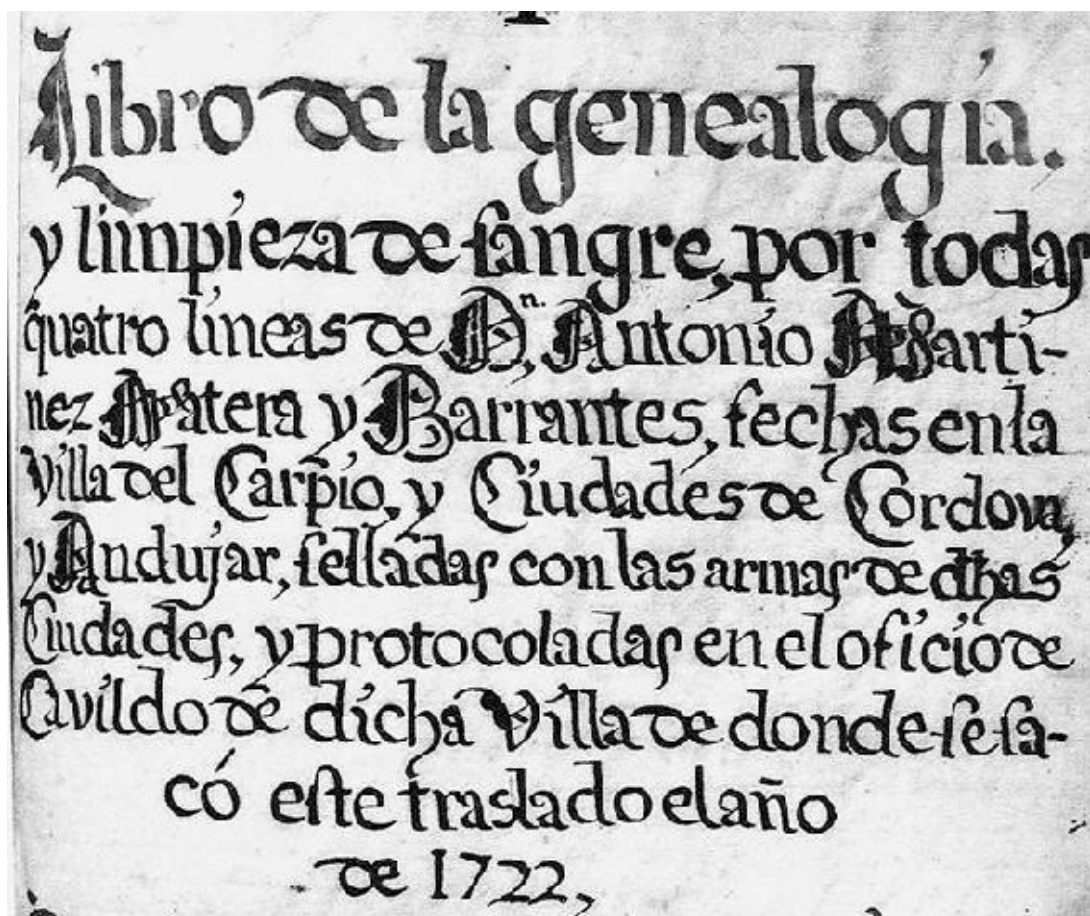 Libro de la genealogia.
y limpieza de sangre, por todas
quatro lineas de Dn. Antonio Marti-
nez Matera y Barrantes, fechas en la
Villa del Carpio, y Ciudades de Cordova,
y Andujar, selladas con las armas de dhas
Ciudades, y protocoladas en el oficio de
Cavildo de dicha Villa de donde se sa-
có este traslado el año
de 1722,